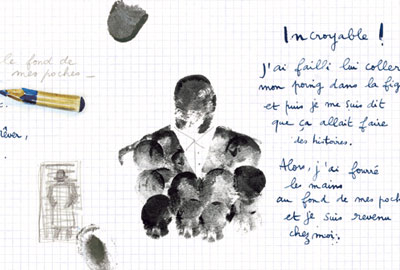 le fond de
mes poches_
c.
rêver,
Incroyable !
J'ai failli lui coller
mon poing dans la fig
et puis je me suis dit
que ça allait faire
des histoires.
Alors, j'ai fourré
les mains
au fond de mes poch
et je suis revenu
chez moi.